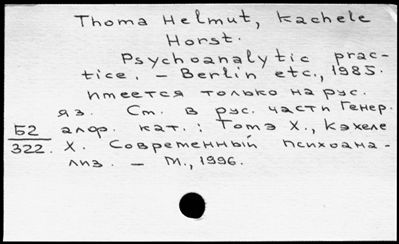 Thoma Helmut, Kachele
Horst.
Psychoanalytic prac-
tice. - Berlin etc., 1985.
Имеется только на рус.
яз. См. в рус. части Генер.
Б2 алф. кат.: Томэ Х., Кэхеле
322. Х. Современный психоана-
лиз. - М., 1996.